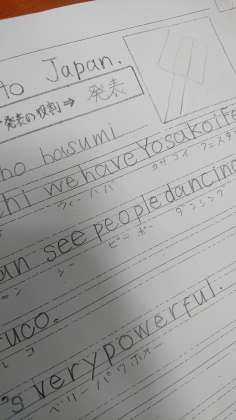 to Japan.
発表の役割⇒ 発表
ho hasumi
chi we have Yosakoi
ウィー ハバ ヨサコイ フェスタ
an see people dancing
シー ピーポー ダンシング
ruco.
レコ
's very powerful.
ベリー パワホォー